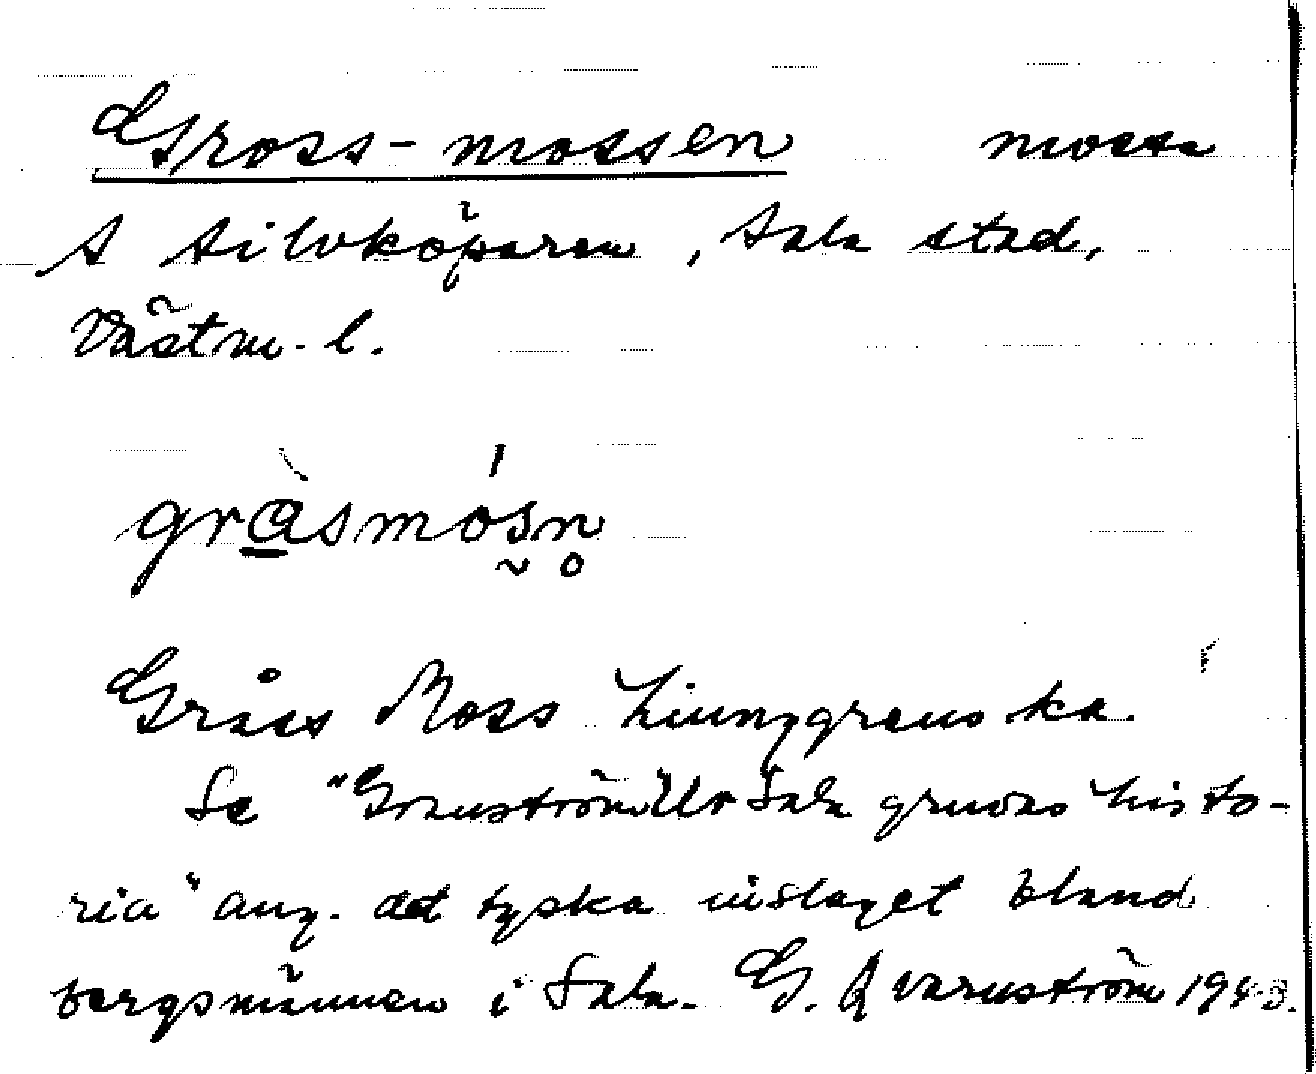 Gross-mossen mosse
S Silvköparen, Sala stad,
Västm. l.
gràsmósn̥
Gråss Moss Liunggrens ka.
Se "Granström Ur Sala gruvas histo-
ria" ang. det tyska inslaget bland
bergsmännen i Sala. G. Qvarnström 1943.